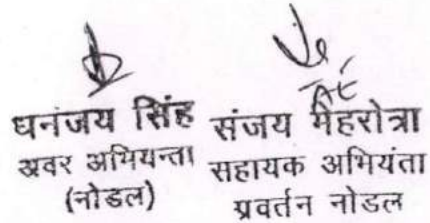 AE
धनंजय सिंह
अवर अभियन्ता
(नोडल)
संजय मेहरोत्रा
सहायक अभियंता
प्रवर्तन नोडल